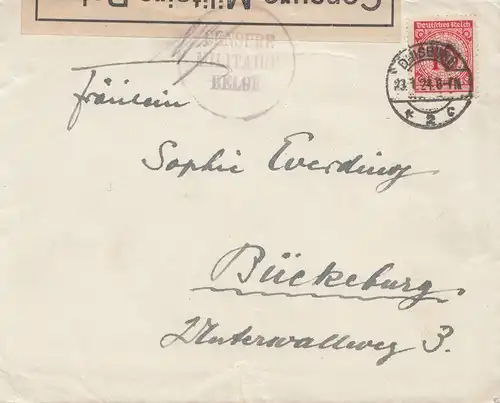 Censure Militaire
CENSURE
MILITAIRE
BELGE
Deutsches Reich
10
DUISBURG
23.1.24.6-7N.
* 2 c
Fräulein
Sophie Everding
Bückeburg
Unterwallweg 3.